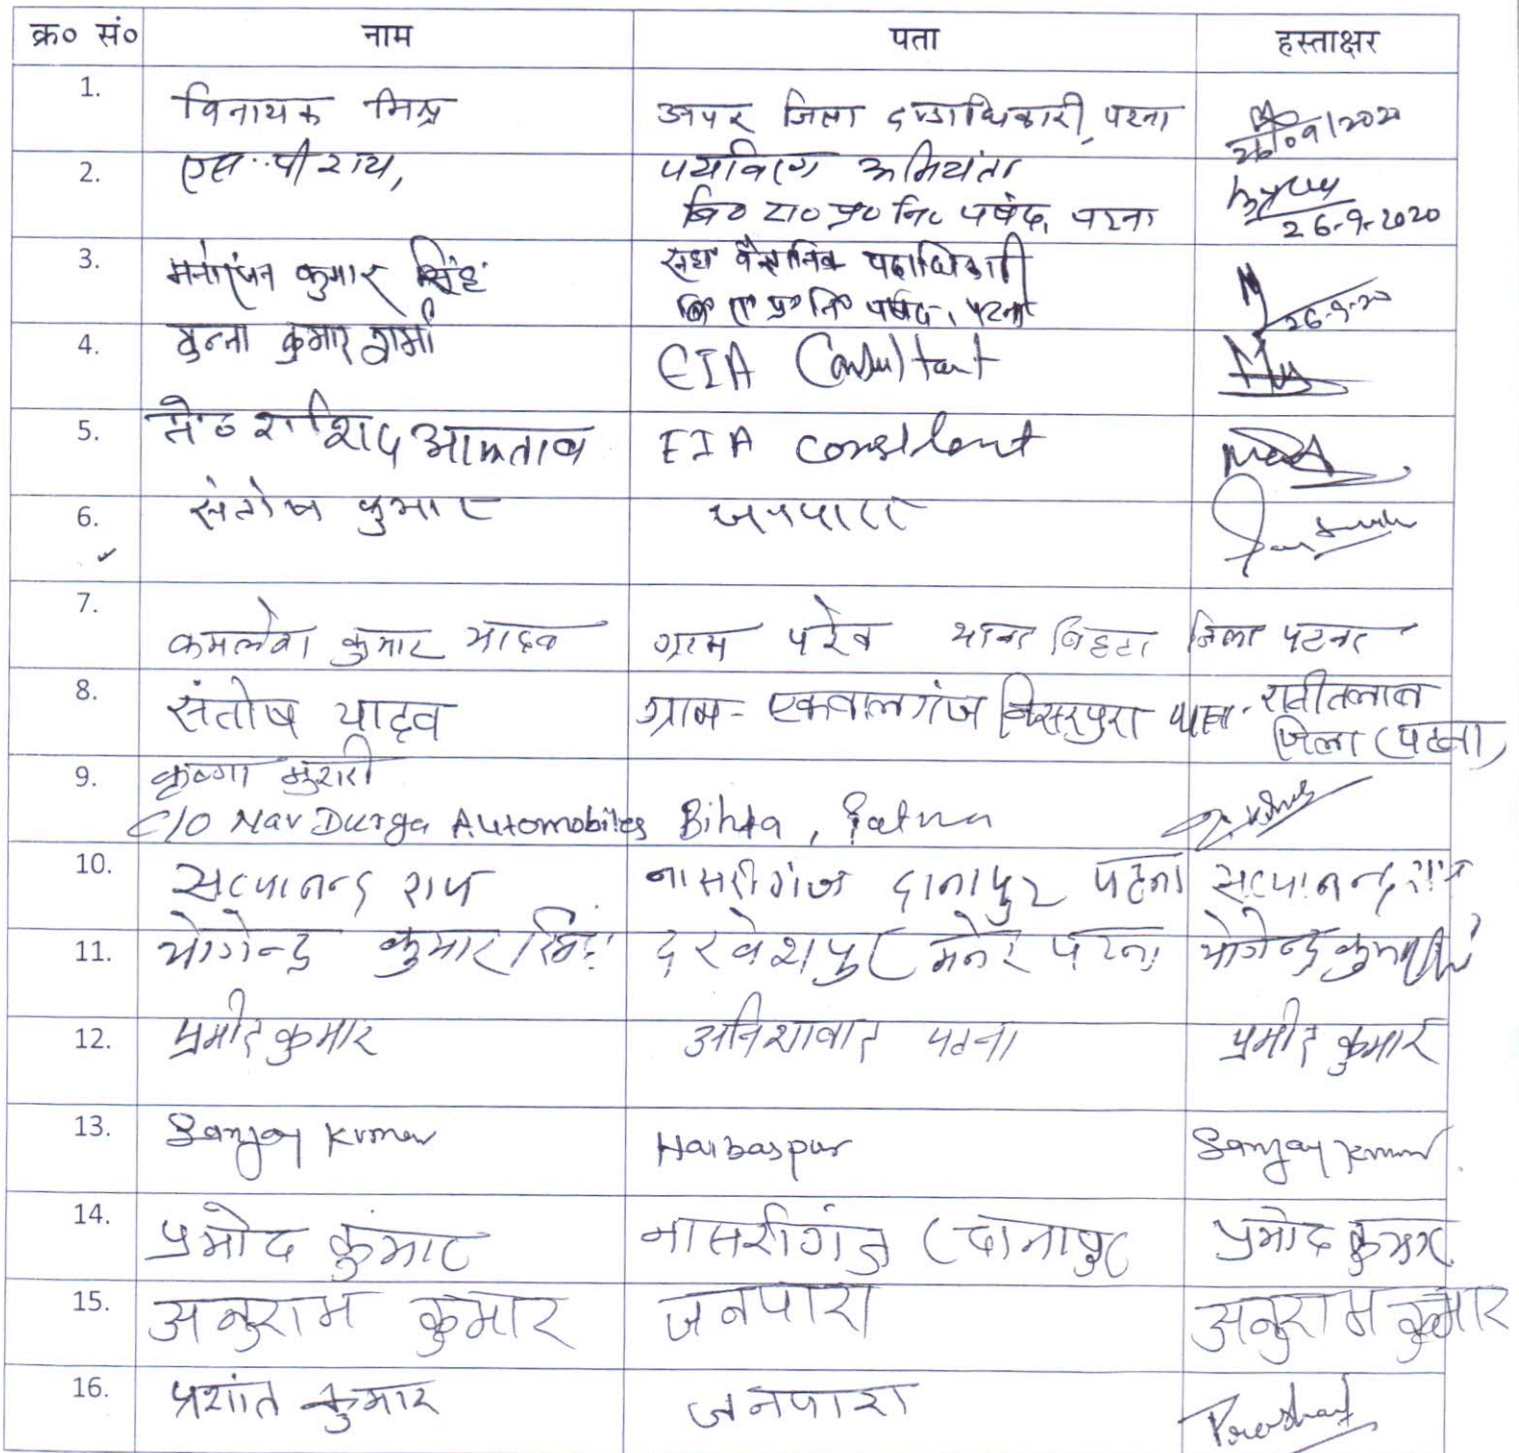 क्र० सं० नाम पता हस्ताक्षर
1. विनायक मिश्र अपर जिला दण्डाधिकारी, पटना 26/09/2020
2. एस. पी राय, पर्यावरण अभियंता
बि० रा० प्र० नि० पर्षद, पटना 26-9-2020
3. मनोरंजन कुमार सिंह वैज्ञानिक पदाधिकारी
बि० रा० प्र० नि० पर्षद, पटना 26-9-20
4. कुमार शर्मा EIA Consultant
5. मो० राशिद आफताब EIA consultant
6. संतोष कुमार
7. कमलेश कुमार यादव ग्राम परेव थाना बिहटा जिला पटना
8. संतोष यादव ग्राम- एकवालगंज बिसरपुरा थाना-
जिला (पटना)
9. कृष्णा मुरारी
C/O Nav Durga Automobiles Bihta, Patna
10. सत्यानन्द राय नासरीगंज दानापुर पटना सत्यानन्द राय
11. योगेन्द्र कुमार सिंह दरवेशपुर मनेर पटना योगेन्द्र कुमार सिंह
12. प्रमोद कुमार अनिशाबाद पटना प्रमोद कुमार
13. Sanjay Kumar Haibaspur Sanjay Kumar
14. प्रमोद कुमार नासरीगंज (दानापुर प्रमोद कुमार
15. अनुराम कुमार जनपारा अनुराम कुमार
16. प्रशांत कुमार जनपारा Prashant